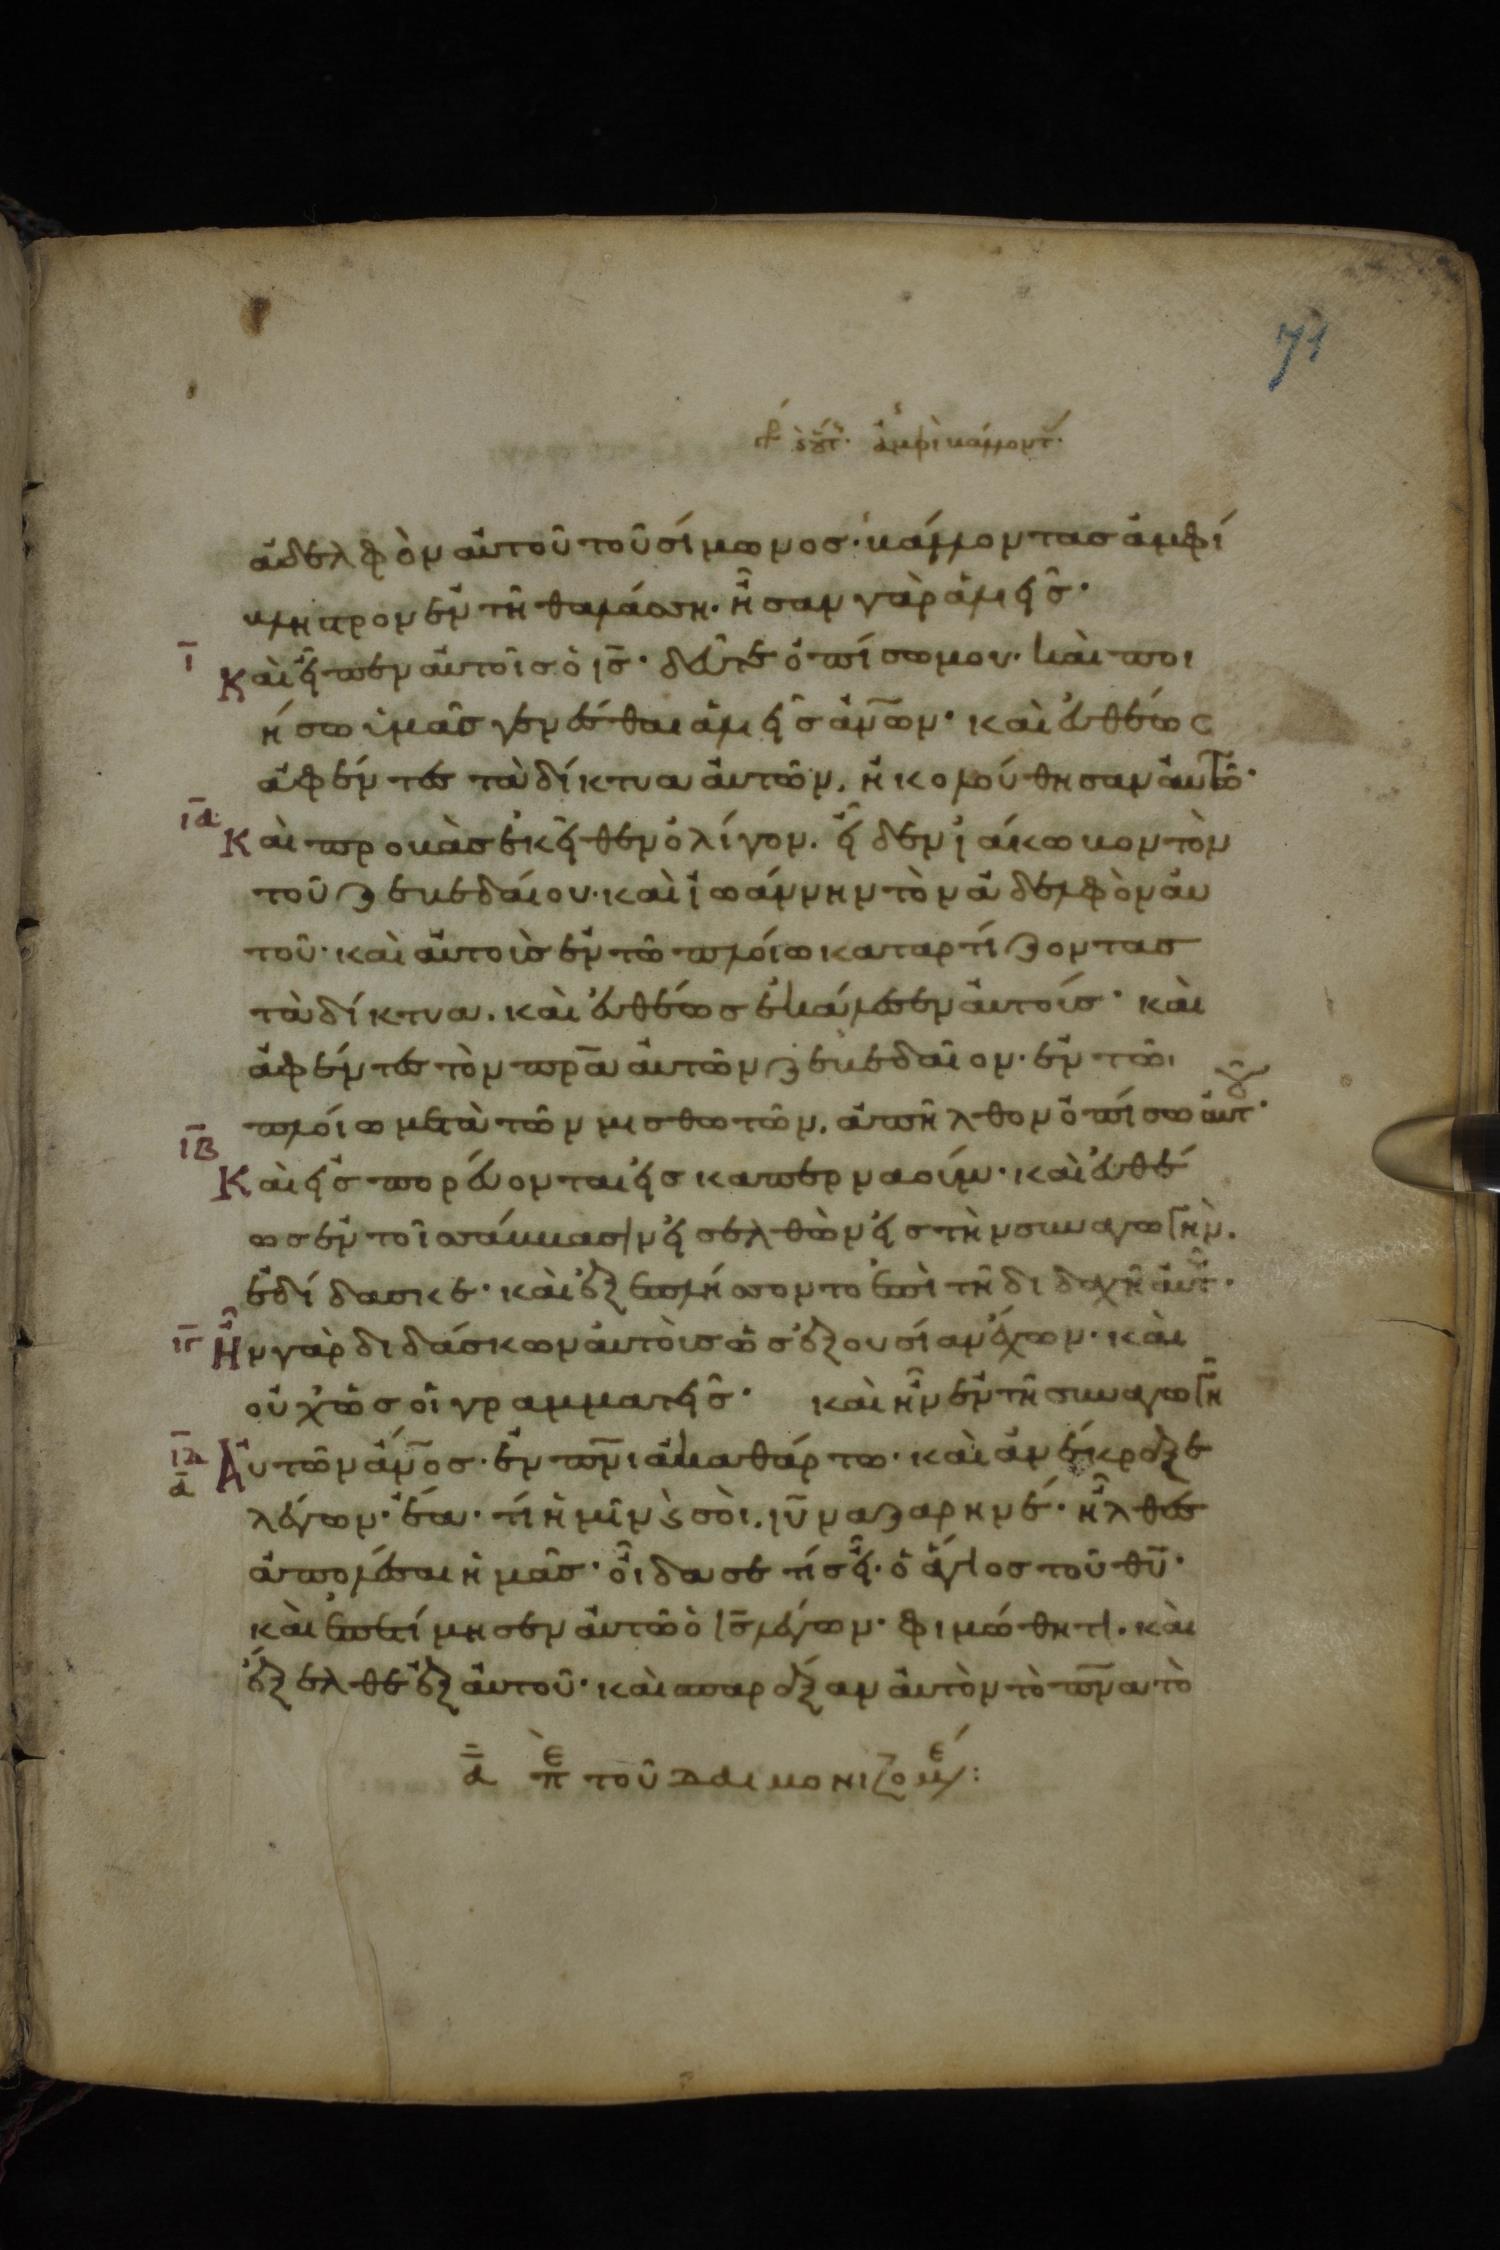 71
ἀδελφὸν αὐτοῦ τοῦ σίμωνος· βάλλοντας ἀμφί
βληστρον ἐν τῆ θαλάσση· ἦσαν γὰρ ἁλιεῖς·
ῑ Καὶ εἶπεν αὐτοῖς ὁ ις̅· δεῦτε ὀπίσω μου· καὶ ποι
ήσω ὑμᾶς γενέσθαι ἁλιεῖς ἀν̅ων· καὶ εὐθέως
ἀφέντες τὰ δίκτυα αὐτῶν, ἠκολούθησαν αὐτῶ·
ιᾱ Καὶ προβὰς ἐκεῖθεν ὀλίγον. εἶδεν ἰάκωβον τὸν
τοῦ ζεβεδαίου· καὶ ἰωάννην τὸν ἀδελφὸν αὐ
τοῦ· καὶ αὐτοὺς ἐν τῶ πλοίω καταρτίζοντας
τὰ δίκτυα. καὶ εὐθέως ἐκάλεσεν αὐτοὺς· καὶ
ἀφέντες τὸν πρ̅α αὐτῶν ζεβεδαῖον· ἐν τῶ
πλοίω μετὰ τῶν μισθωτῶν, ἀπῆλθον ὀπίσω αὐτοῦ·
ιβ̅ Καὶ εἰσπορεύονται εἰς καπερναούμ· καὶ εὐθέ
ως ἐν τοῖς σάββασιν εἰσελθὼν εἰς τὴν συναγωγὴν.
ἐδίδασκε· καὶ ἐξεπλήσσοντο ἐπὶ τῆ διδαχῆ αὐτοῦ·
ιγ̅ Ἦν γὰρ διδάσκων αὐτοὺς ὡς ἐξουσίαν ἔχων· καὶ
οὐχ ὡς οἱ γραμματεῖς· καὶ ἦν ἐν τῆ συναγωγῆ
ιδ̅ ᾱ Αὐτῶν ἄν̅ος· ἐν πν̅ι ἀκαθάρτω· καὶ ἀνέκραξε
λέγων· ἔα· τί ἡμῖν ϗ σοὶ. ιυ̅ ναζαρηνέ· ἦλθες
ἀπολέσαι ἡμᾶς· οἶδα σε τίς εἶ· ὁ ἅγιος τοῦ θυ̅·
καὶ ἐπετίμησεν αὐτῶ ὁ ις̅ λέγων· φιμώθητι. καὶ
ἔξελθε ἐξ αὐτοῦ· καὶ σπαράξαν αὐτὸν τὸ πν̅α τὸ
ᾱ πε τοῦ δαιμονιζομέ: